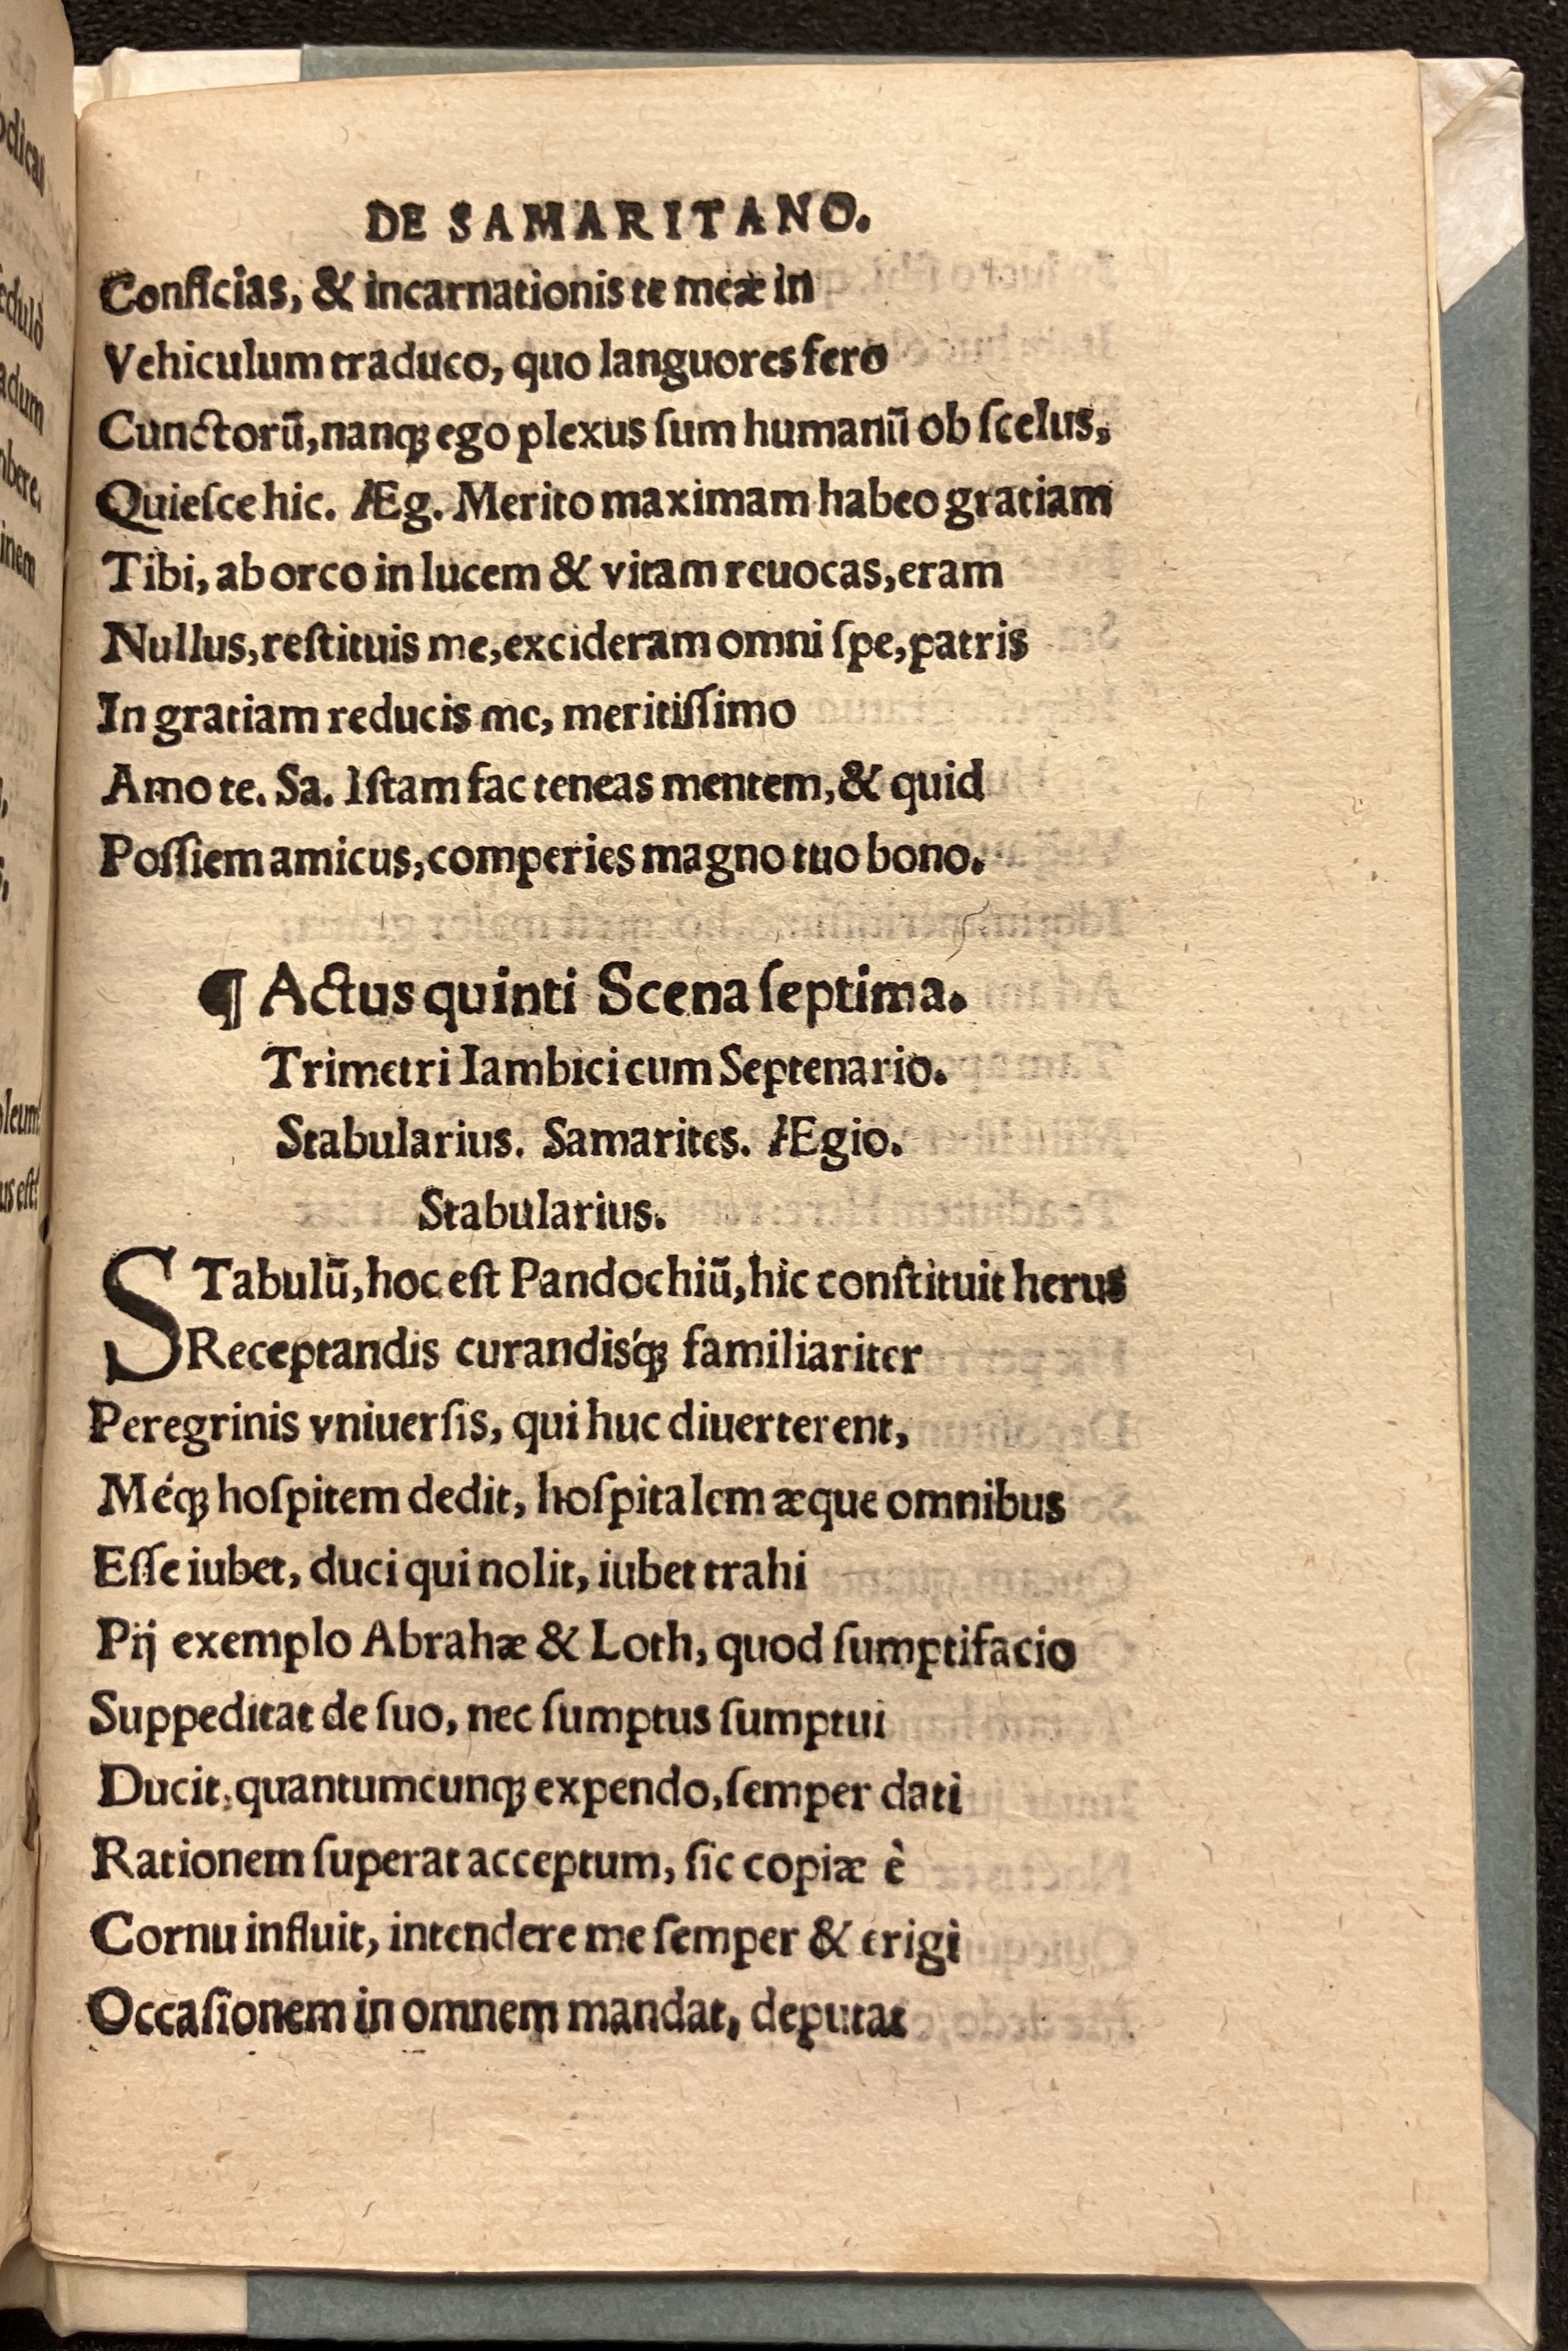 DE SAMARITANO.
Conficias, & incarnationis te meæ in
Vehiculum traduco, quo languores fero
Cunctorū, nanqꝫ ego plexus ſum humanū ob ſcelus,
Quieſce hic. Æg. Merito maximam habeo gratiam
Tibi, ab orco in lucem & vitam reuocas, eram
Nullus, reſtituis me, excideram omni ſpe, patris
In gratiam reducis me, meritiſſimo
Amo te. Sa. Iſtam fac teneas mentem, & quid
Poſſiem amicus, comperies magno tuo bono.
¶ Actus quinti Scena ſeptima.
Trimetri Iambici cum Septenario.
Stabularius. Samarites. Ægio.
Stabularius.
STabulū, hoc eſt Pandochiū, hic conſtituit herus
Receptandis curandiśqꝫ familiariter
Peregrinis vniuerſis, qui huc diuerterent,
Méqꝫ hoſpitem dedit, hoſpitalem æque omnibus
Eſſe iubet, duci qui nolit, iubet trahi
Pij exemplo Abrahæ & Loth, quod ſumptifacio
Suppeditat de ſuo, nec ſumptus ſumptui
Ducit, quantumcunqꝫ expendo, ſemper dati
Rationem ſuperat acceptum, ſic copiæ è
Cornu influit, intendere me ſemper & erigi
Occaſionem in omnem mandat, deputat